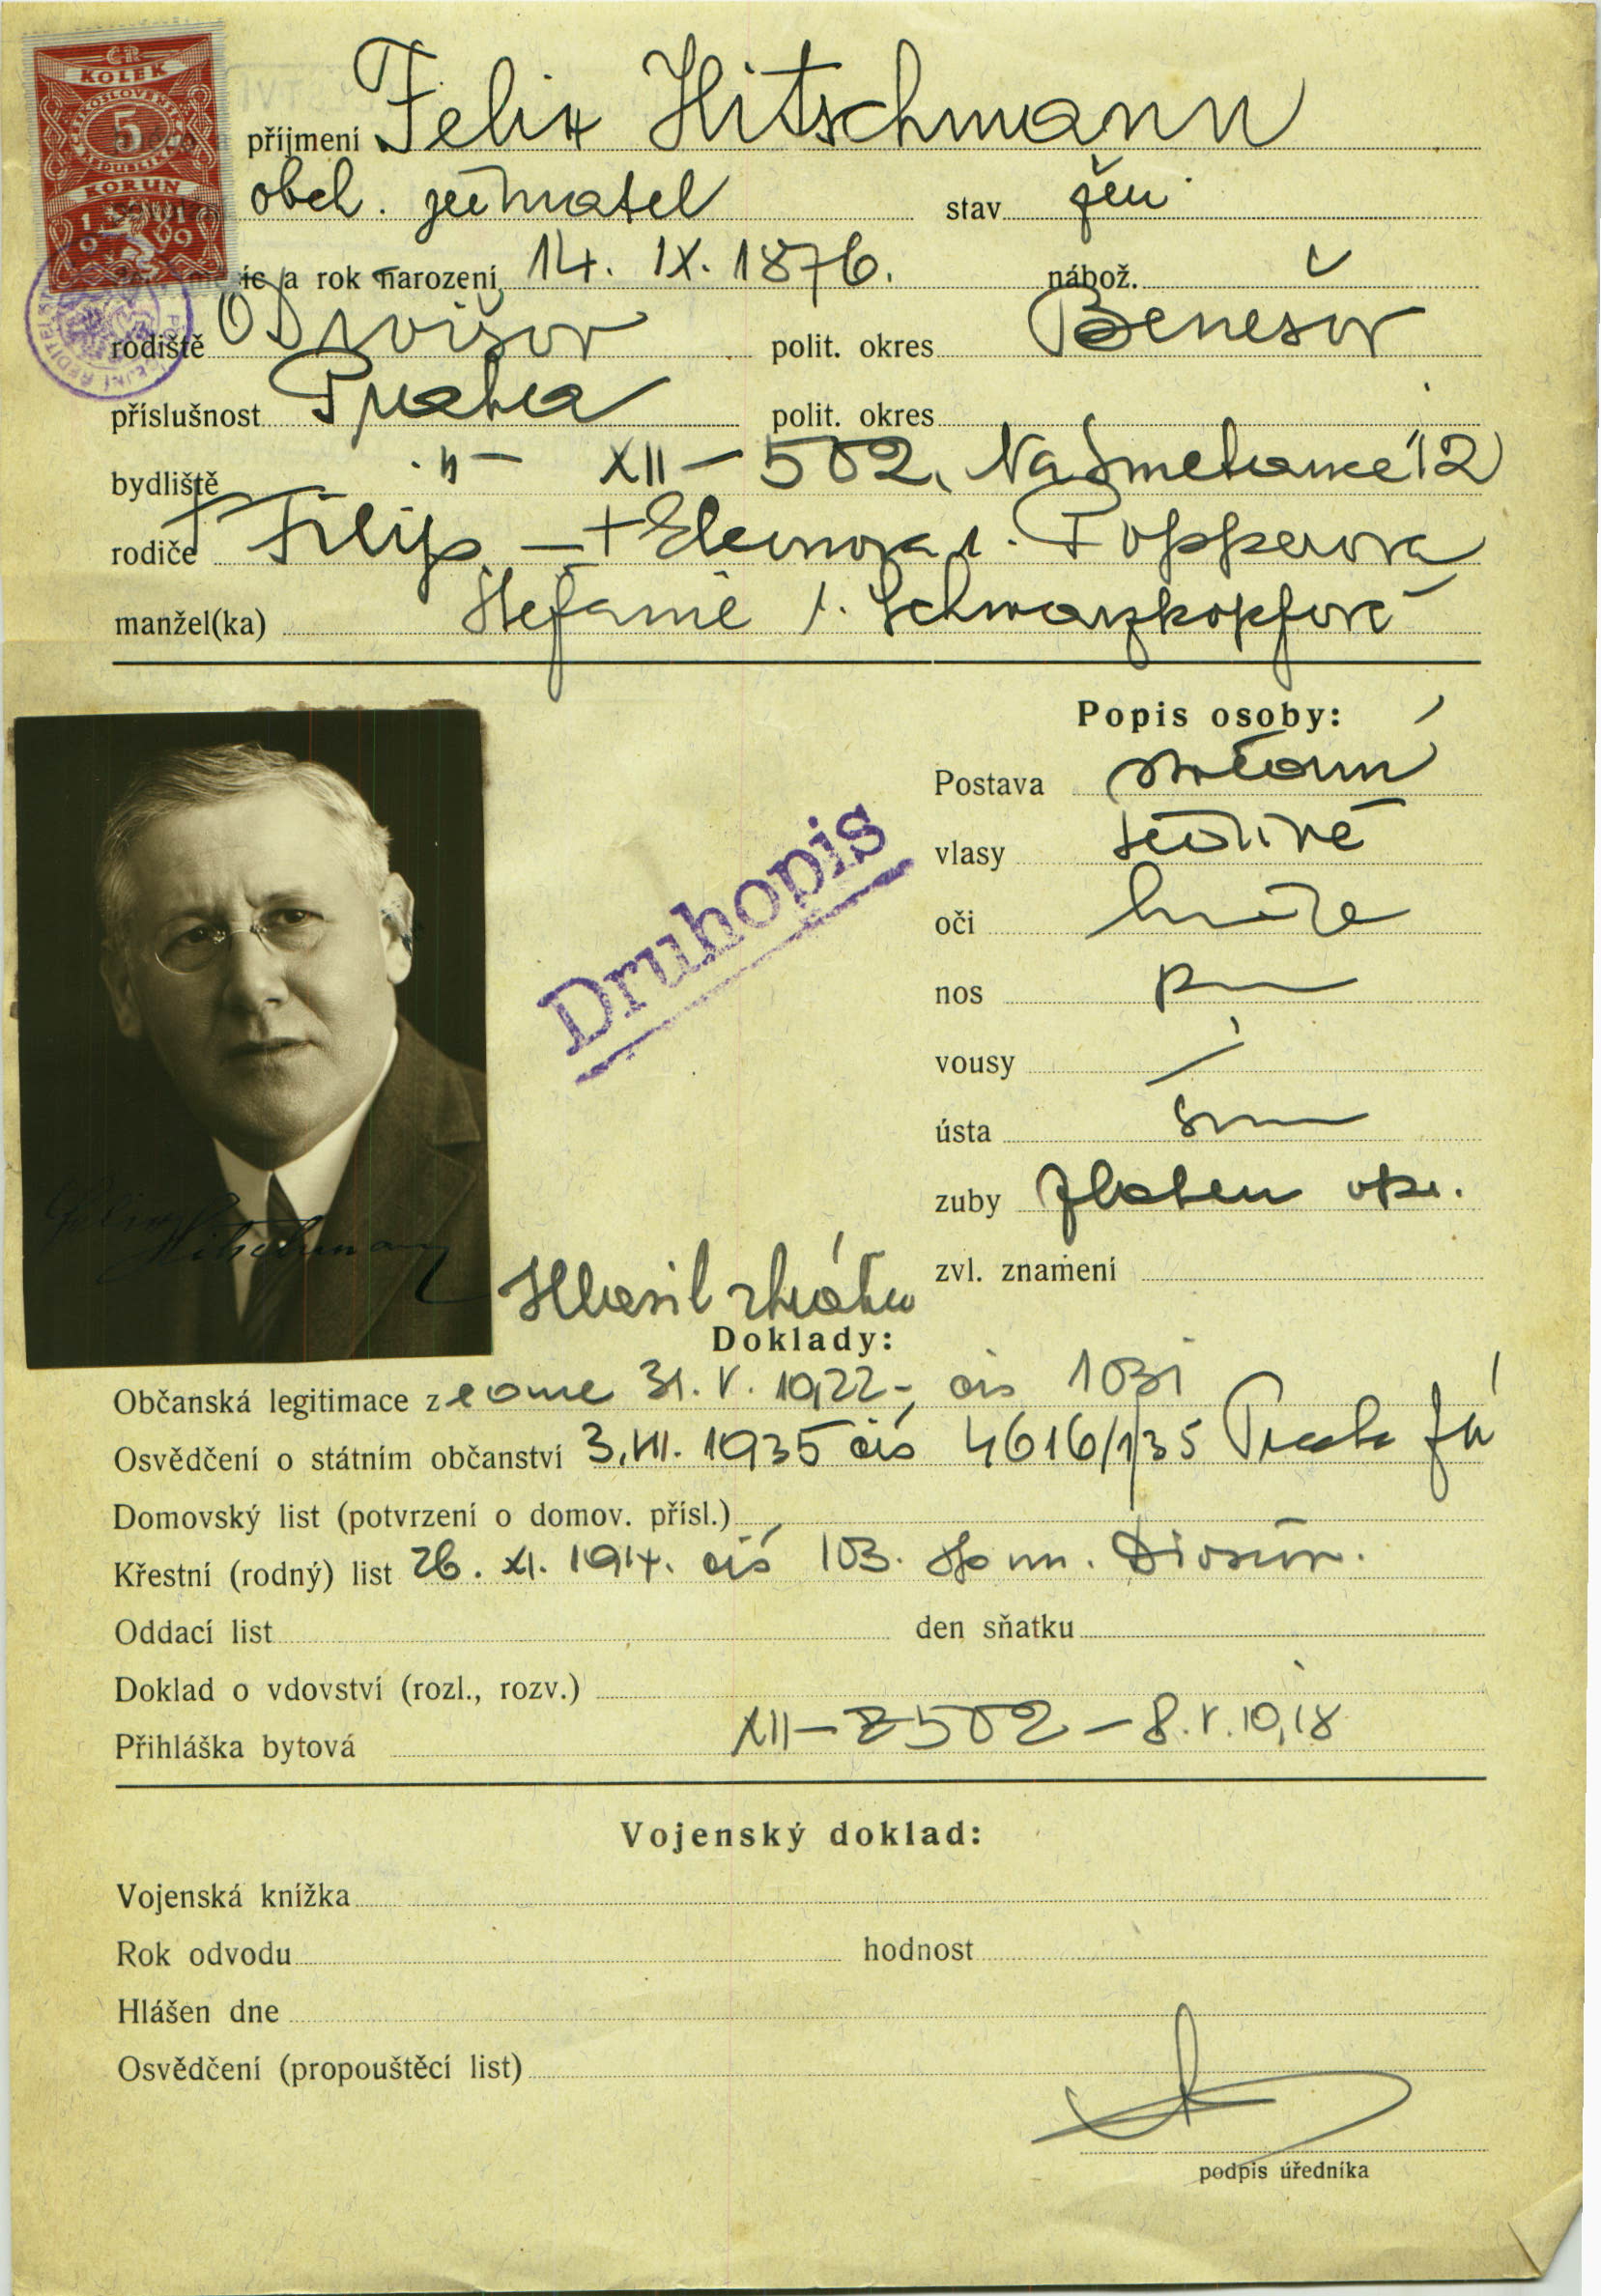 ČR
KOLEK
5
KORUN
19 39
příjmení Felix Hitschmann
obch. jednatel stav žen.
a rok narození 14. IX. 1876. nábož.
rodiště Divišov polit. okres Benešov
příslušnost Praha polit. okres
bydliště -"- XII - 502, Na Smetance 12
rodiče † Filip - † Eleonora r. Popperova
manžel(ka) Stefanie r. Schwarzkopfová
Popis osoby:
Postava
vlasy šedivé
oči hnědé
nos
vousy
ústa
zuby
zvl. znamení
Druhopis
Felix Hitschmann
Hlásil ztrátu
Doklady:
Občanská legitimace z 31. V. 1922 - čís 1031
Osvědčení o státním občanství 3. VII. 1935 čís 4616/1/35 Praha
Domovský list (potvrzení o domov. přísl.)
Křestní (rodný) list 26. XI. 1914. čís 103. Divišov.
Oddací list den sňatku
Doklad o vdovství (rozl., rozv.)
Přihláška bytová XII - 502 - 8. V. 1918
Vojenský doklad:
Vojenská knížka
Rok odvodu hodnost
Hlášen dne
Osvědčení (propouštěcí list)
podpis úředníka